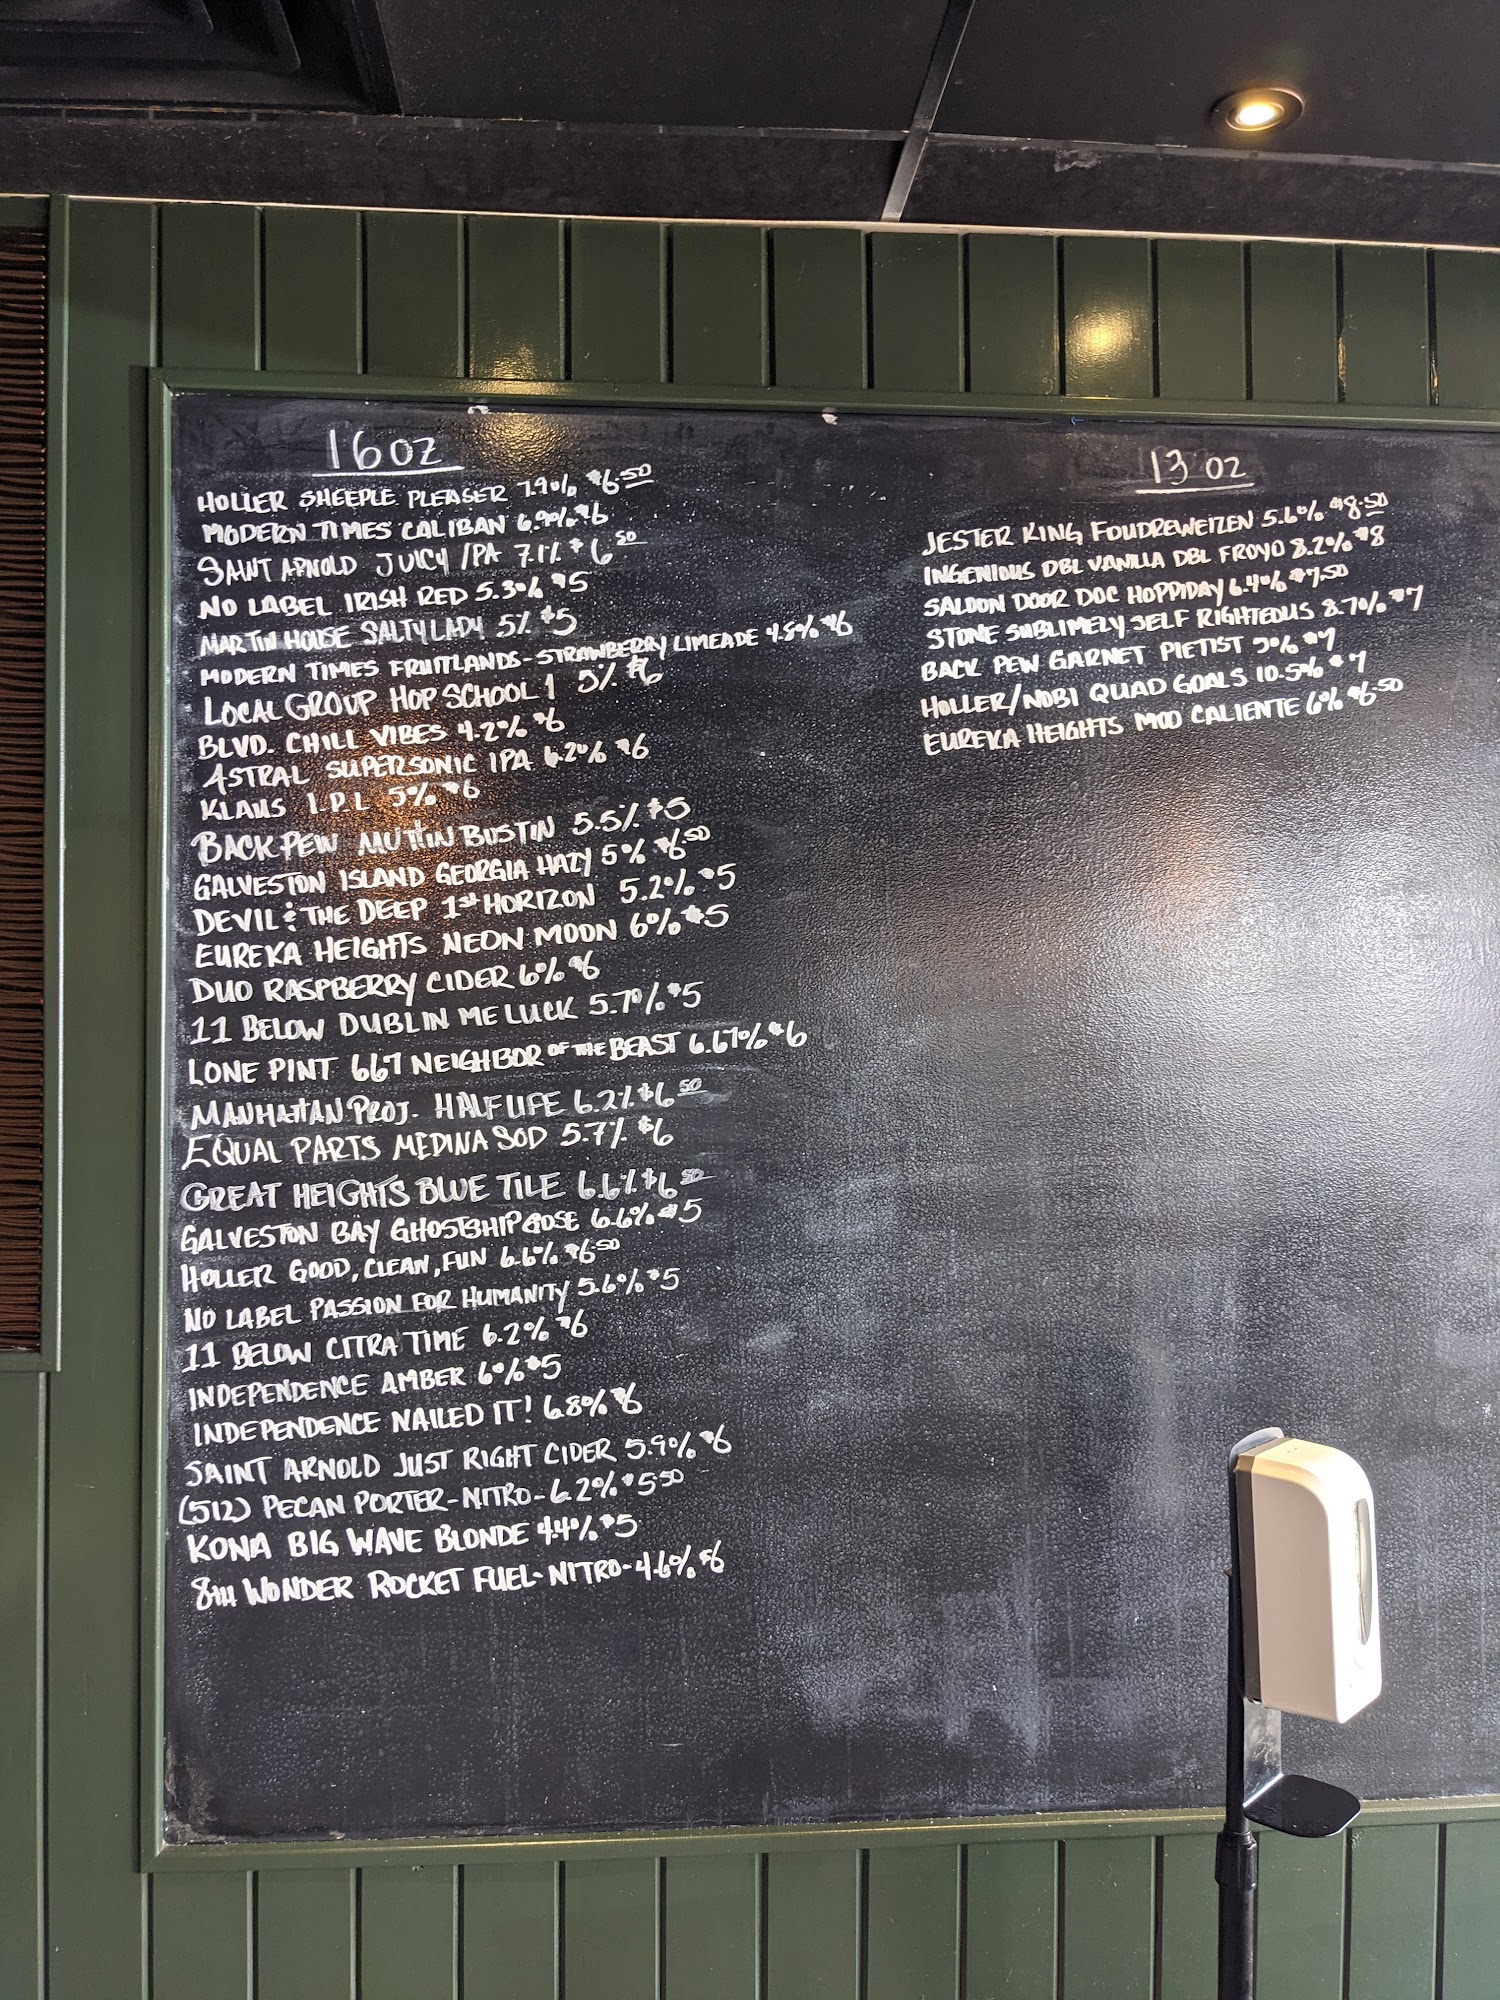 16 OZ
HOLLER SHEEPLE PLEASER 7.9% $6.50
MODERN TIMES CALIBAN 6.9% $6
SAINT ARNOLD JUICY IPA 7.1% $6.50
NO LABEL IRISH RED 5.3% $5
MARTIN HOUSE SALTY LADY 5% $5
MODERN TIMES FRUITLANDS-STRAWBERRY LIMEADE 4.8% $6
LOCAL GROUP HOP SCHOOL 1 5% $6
BLVD. CHILL VIBES 4.2% $6
ASTRAL SUPERSONIC IPA 6.2% $6
KLAUS I.P.L 5% $6
BACK PEW MUTTIN BUSTIN 5.5% $5
GALVESTON ISLAND GEORGIA HAZY 5% $6.50
DEVIL & THE DEEP 1st HORIZON 5.2% $5
EUREKA HEIGHTS NEON MOON 6% $5
DUO RASPBERRY CIDER 6% $6
11 BELOW DUBLIN ME LUCK 5.7% $5
LONE PINT 667 NEIGHBOR OF THE BEAST 6.67% $6
MANHATTAN PROJ. HALF LIFE 6.2% $6.50
EQUAL PARTS MEDINA SOD 5.7% $6
GREAT HEIGHTS BLUE TILE 6.6% $6.50
GALVESTON BAY GHOSTSHIP GOSE 6.6% $5
HOLLER GOOD, CLEAN, FUN 6.6% $6.50
NO LABEL PASSION FOR HUMANITY 5.6% $5
11 BELOW CITRA TIME 6.2% $6
INDEPENDENCE AMBER 6% $5
INDEPENDENCE NAILED IT! 6.8% $6
SAINT ARNOLD JUST RIGHT CIDER 5.9% $6
(512) PECAN PORTER-NITRO- 6.2% $5.50
KONA BIG WAVE BLONDE 4.4% $5
8TH WONDER ROCKET FUEL-NITRO- 4.6% $6
13 OZ
JESTER KING FOUDREWEIZEN 5.6% $8.50
INGENIOUS DBL VANILLA DBL FROYO 8.2% $8
SALOON DOOR DOC HOPPIDAY 6.4% $7.50
STONE SUBLIMELY SELF RIGHTEOUS 8.7% $7
BACK PEW GARNET PIETIST 9% $7
HOLLER/NOBI QUAD GOALS 10.5% $7
EUREKA HEIGHTS MOO CALIENTE 6% $6.50